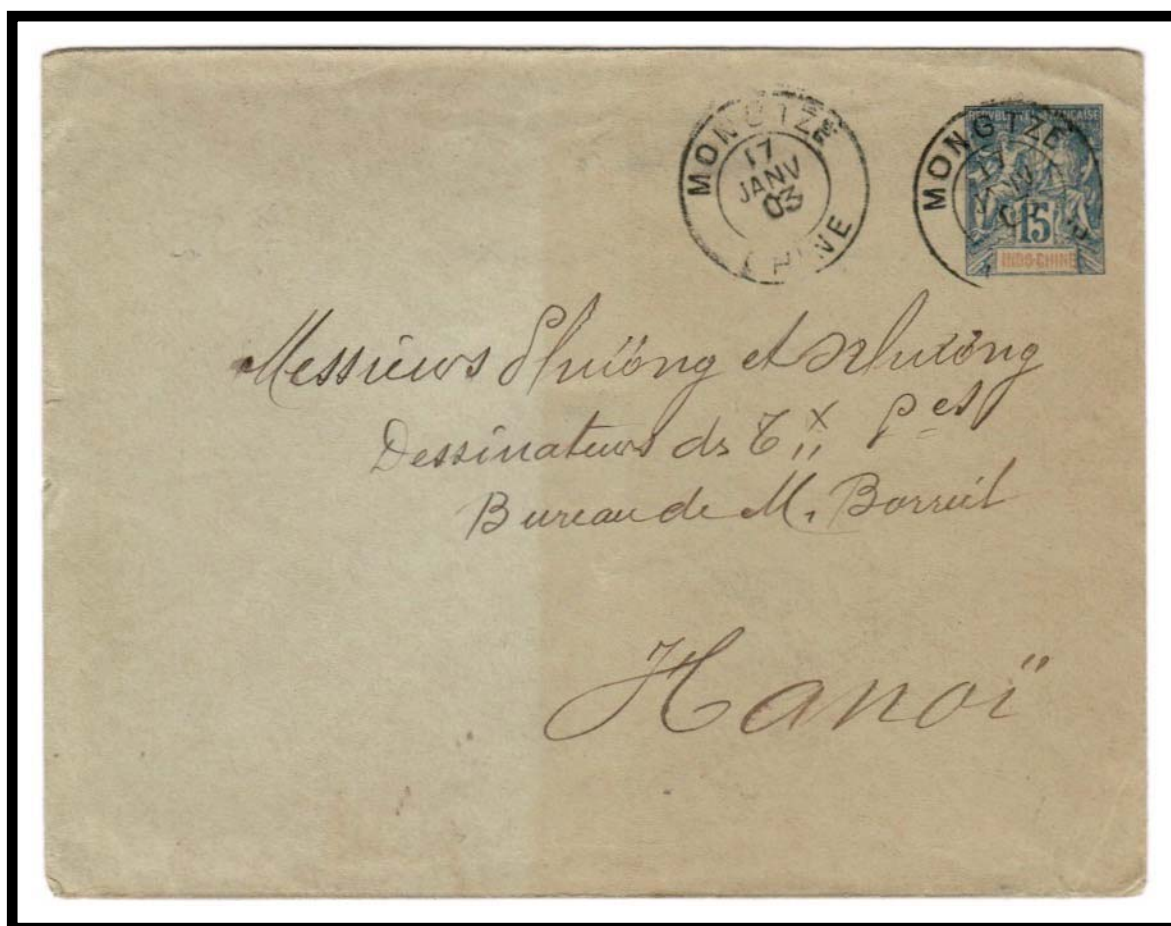 MONGTZE
17
JANV
03
CHINE
MONGTZE
17
JANV
03
REPUBLIQUE FRANCAISE
15
INDO-CHINE
Messieurs et
Dessinateurs ds Tx Pes
Bureau de M. Borreil
Hanoï